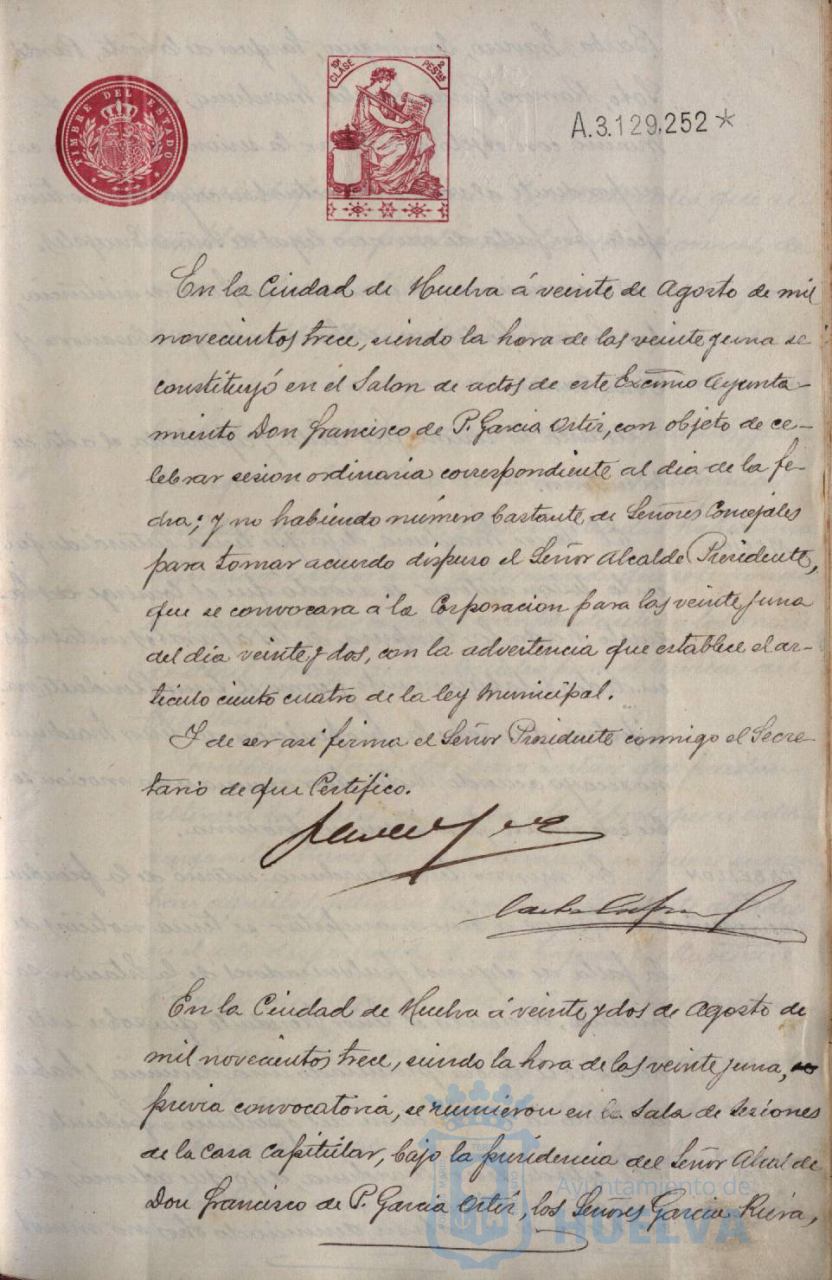 TIMBRE DEL ESTADO
10ª CLASE 2 PESTAS
A.3.129,252*
En la Ciudad de Huelva á veinte de Agosto de mil
novecientos trece, siendo la hora de las veinte y una se
constituyó en el Salon de actos de este Excmo Ayunta-
miento Don Francisco de P. Garcia Ortiz, con objeto de ce-
lebrar sesion ordinaria correspondiente al dia de la fe-
cha; y no habiendo número bastante de Señores Concejales
para tomar acuerdo dispuso el Señor Alcalde Presidente,
que se convocara á la Corporacion para las veinte y una
del dia veinte y dos, con la advertencia que establece el ar-
ticulo ciento cuatro de la ley Municipal.
Y de ser asi firma el Señor Presidente conmigo el Secre-
tario de que Certifico.
En la Ciudad de Huelva á veinte y dos de Agosto de
mil novecientos trece, siendo la hora de las veinte y una,
previa convocatoria, se reunieron en la Sala de Sesiones
de la casa capitular, bajo la presidencia del Señor Alcalde
Don Francisco de P. Garcia Ortiz, los Señores Garcia Riera,
Ayuntamiento de
HUELVA